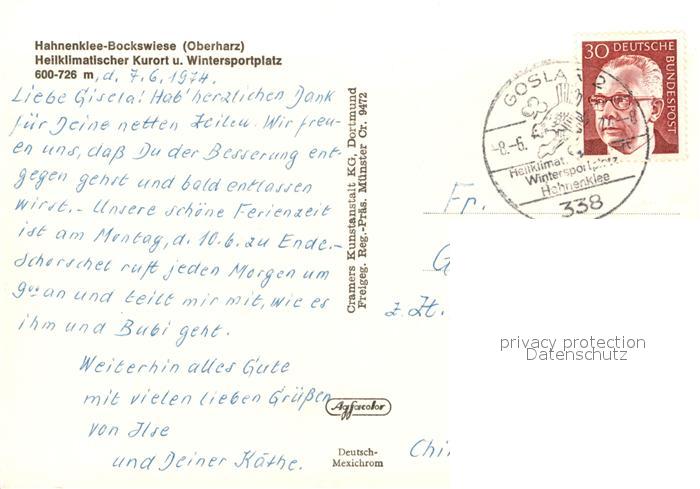 Hahnenklee-Bockswiese (Oberharz)
Heilklimatischer Kurort u. Wintersportplatz
600-726 m, d. 7.6.1974.
Liebe Gisela! Hab' herzlichen Dank
für Deine netten Zeilen. Wir freu-
en uns, daß Du der Besserung ent-
gegen gehst und bald entlassen
wirst.- Unsere schöne Ferienzeit
ist am Montag, d. 10.6. zu Ende.-
Schorschel ruft jeden Morgen um
9°° an und teilt mir mit, wie es
ihm und Bubi geht.
Weiterhin alles Gute
mit vielen lieben Grüßen
von Ilse
und Deiner Käthe.
Cramers Kunstanstalt KG, Dortmund
Freigeg. Reg.-Präs. Münster Cr. 9472
Agfacolor
Deutsch-
Mexichrom
30 DEUTSCHE
BUNDESPOST
GOSLAR
-8.-6.
Heilklimat.
Wintersportplatz
Hahnenklee
338
Fr.
G
z. Zt.
Chi
privacy protection
Datenschutz